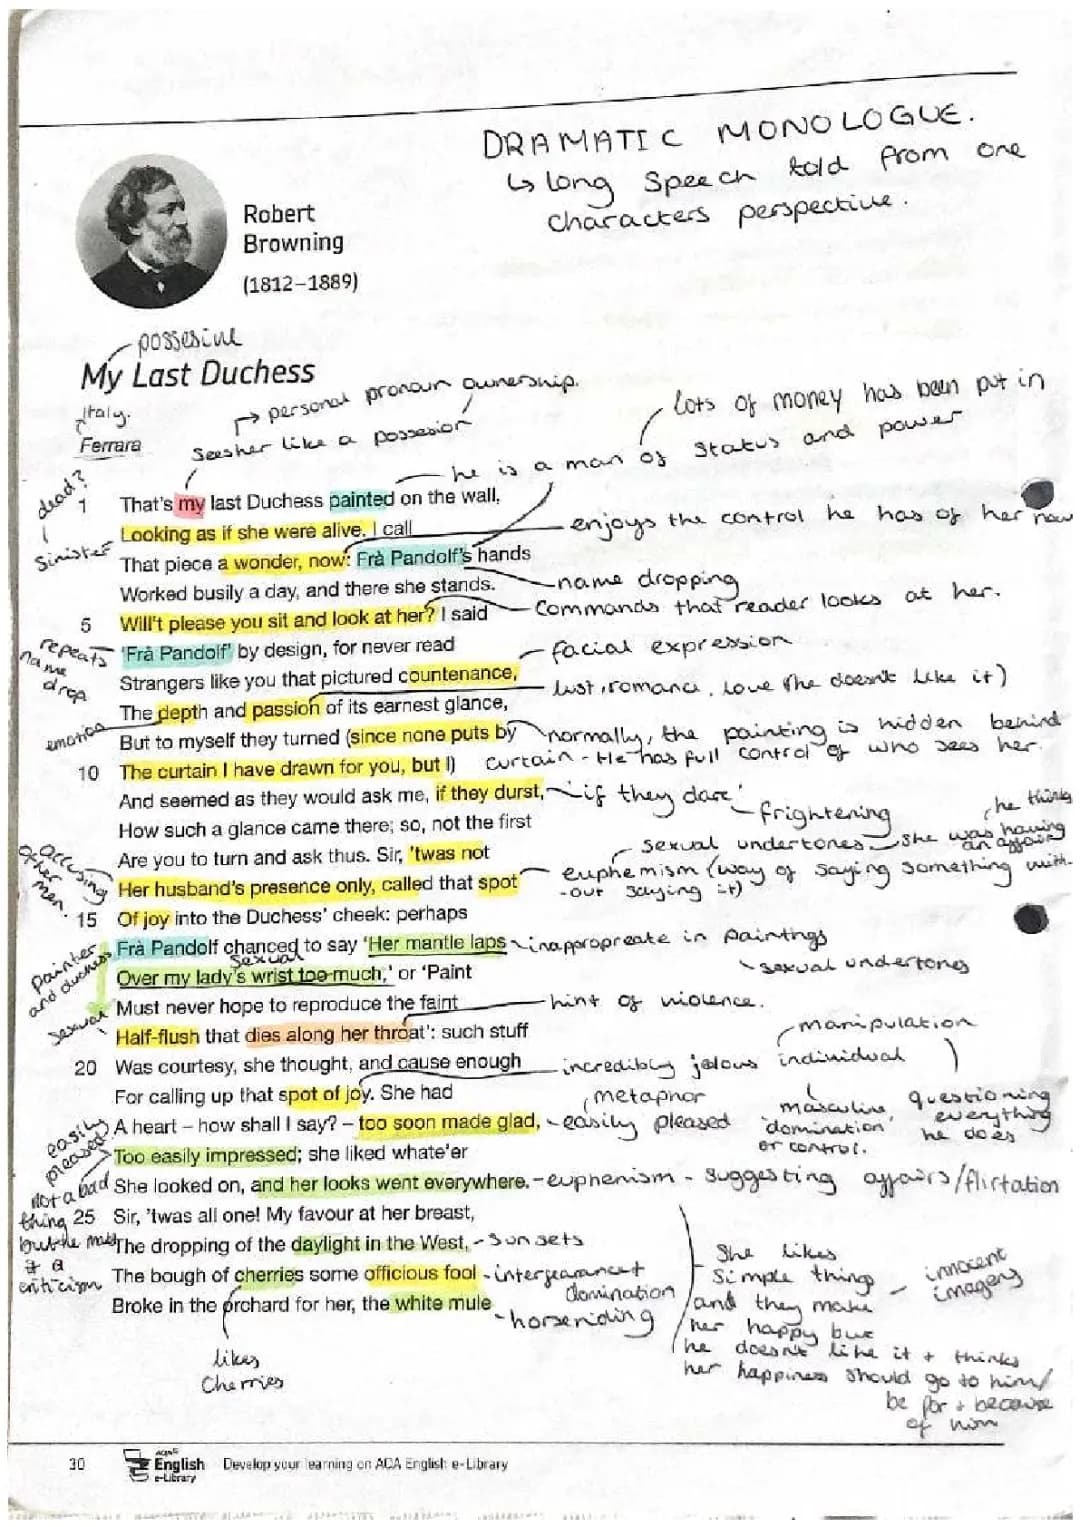 DRAMATIC MONOLOGUE.
↳ long speech told from one
characters perspective.
Robert
Browning
(1812–1889)
possesive
My Last Duchess
Italy.
Ferrara
→ personal pronoun ownership.
Sees her like a possesion
lots of money has been put in
he is a man of status and power
dead?
sinister
1 That's my last Duchess painted on the wall,
Looking as if she were alive. I call
enjoys the control he has of her now
That piece a wonder, now: Frà Pandolf's hands
Worked busily a day, and there she stands.
name dropping
5 Will't please you sit and look at her? I said
Commands that reader looks at her.
repeats
name
drop
'Frà Pandolf' by design, for never read
facial expression
Strangers like you that pictured countenance,
lust, romance, love (he doesn't like it)
The depth and passion of its earnest glance,
emotion
But to myself they turned (since none puts by
normally, the painting is hidden behind
10 The curtain I have drawn for you, but I)
curtain - He has full control of who sees her.
And seemed as they would ask me, if they durst,
'if they dare'
frightening
How such a glance came there; so, not the first
Are you to turn and ask thus. Sir, 'twas not
sexual undertones
she was having
an affair
he thinks
accusing
other
men.
Her husband's presence only, called that spot
euphemism (way of saying something with-
-out saying it)
15 Of joy into the Duchess' cheek: perhaps
Frà Pandolf chanced to say 'Her mantle laps
inappropreate in paintings
sexual undertones
painter
and duchess
Sexual
Over my lady's wrist too much,' or 'Paint
Must never hope to reproduce the faint
hint of violence.
sexual
Half-flush that dies along her throat': such stuff
manipulation
20 Was courtesy, she thought, and cause enough
incredibly jelous individual
For calling up that spot of joy. She had
metaphor
masculine
'domination'
or control.
questioning
everything
he does
easily
pleased
A heart – how shall I say? – too soon made glad,
easily pleased
Too easily impressed; she liked whate'er
She looked on, and her looks went everywhere.
- euphemism - suggesting affairs/flirtation
Not a bad
thing
but he makes
it a
criticism
25 Sir, 'twas all one! My favour at her breast,
The dropping of the daylight in the West,
- sunsets
The bough of cherries some officious fool
- interfearance +
domination
Broke in the orchard for her, the white mule
- horseriding
likes
Cherries
She likes
simple thing
and they make
her happy but
he doesn't like it + thinks
her happiness should go to him/
be for + because
of him
innocent
imagery
30
English
e-Library
Develop your learning on ACA English e-Library